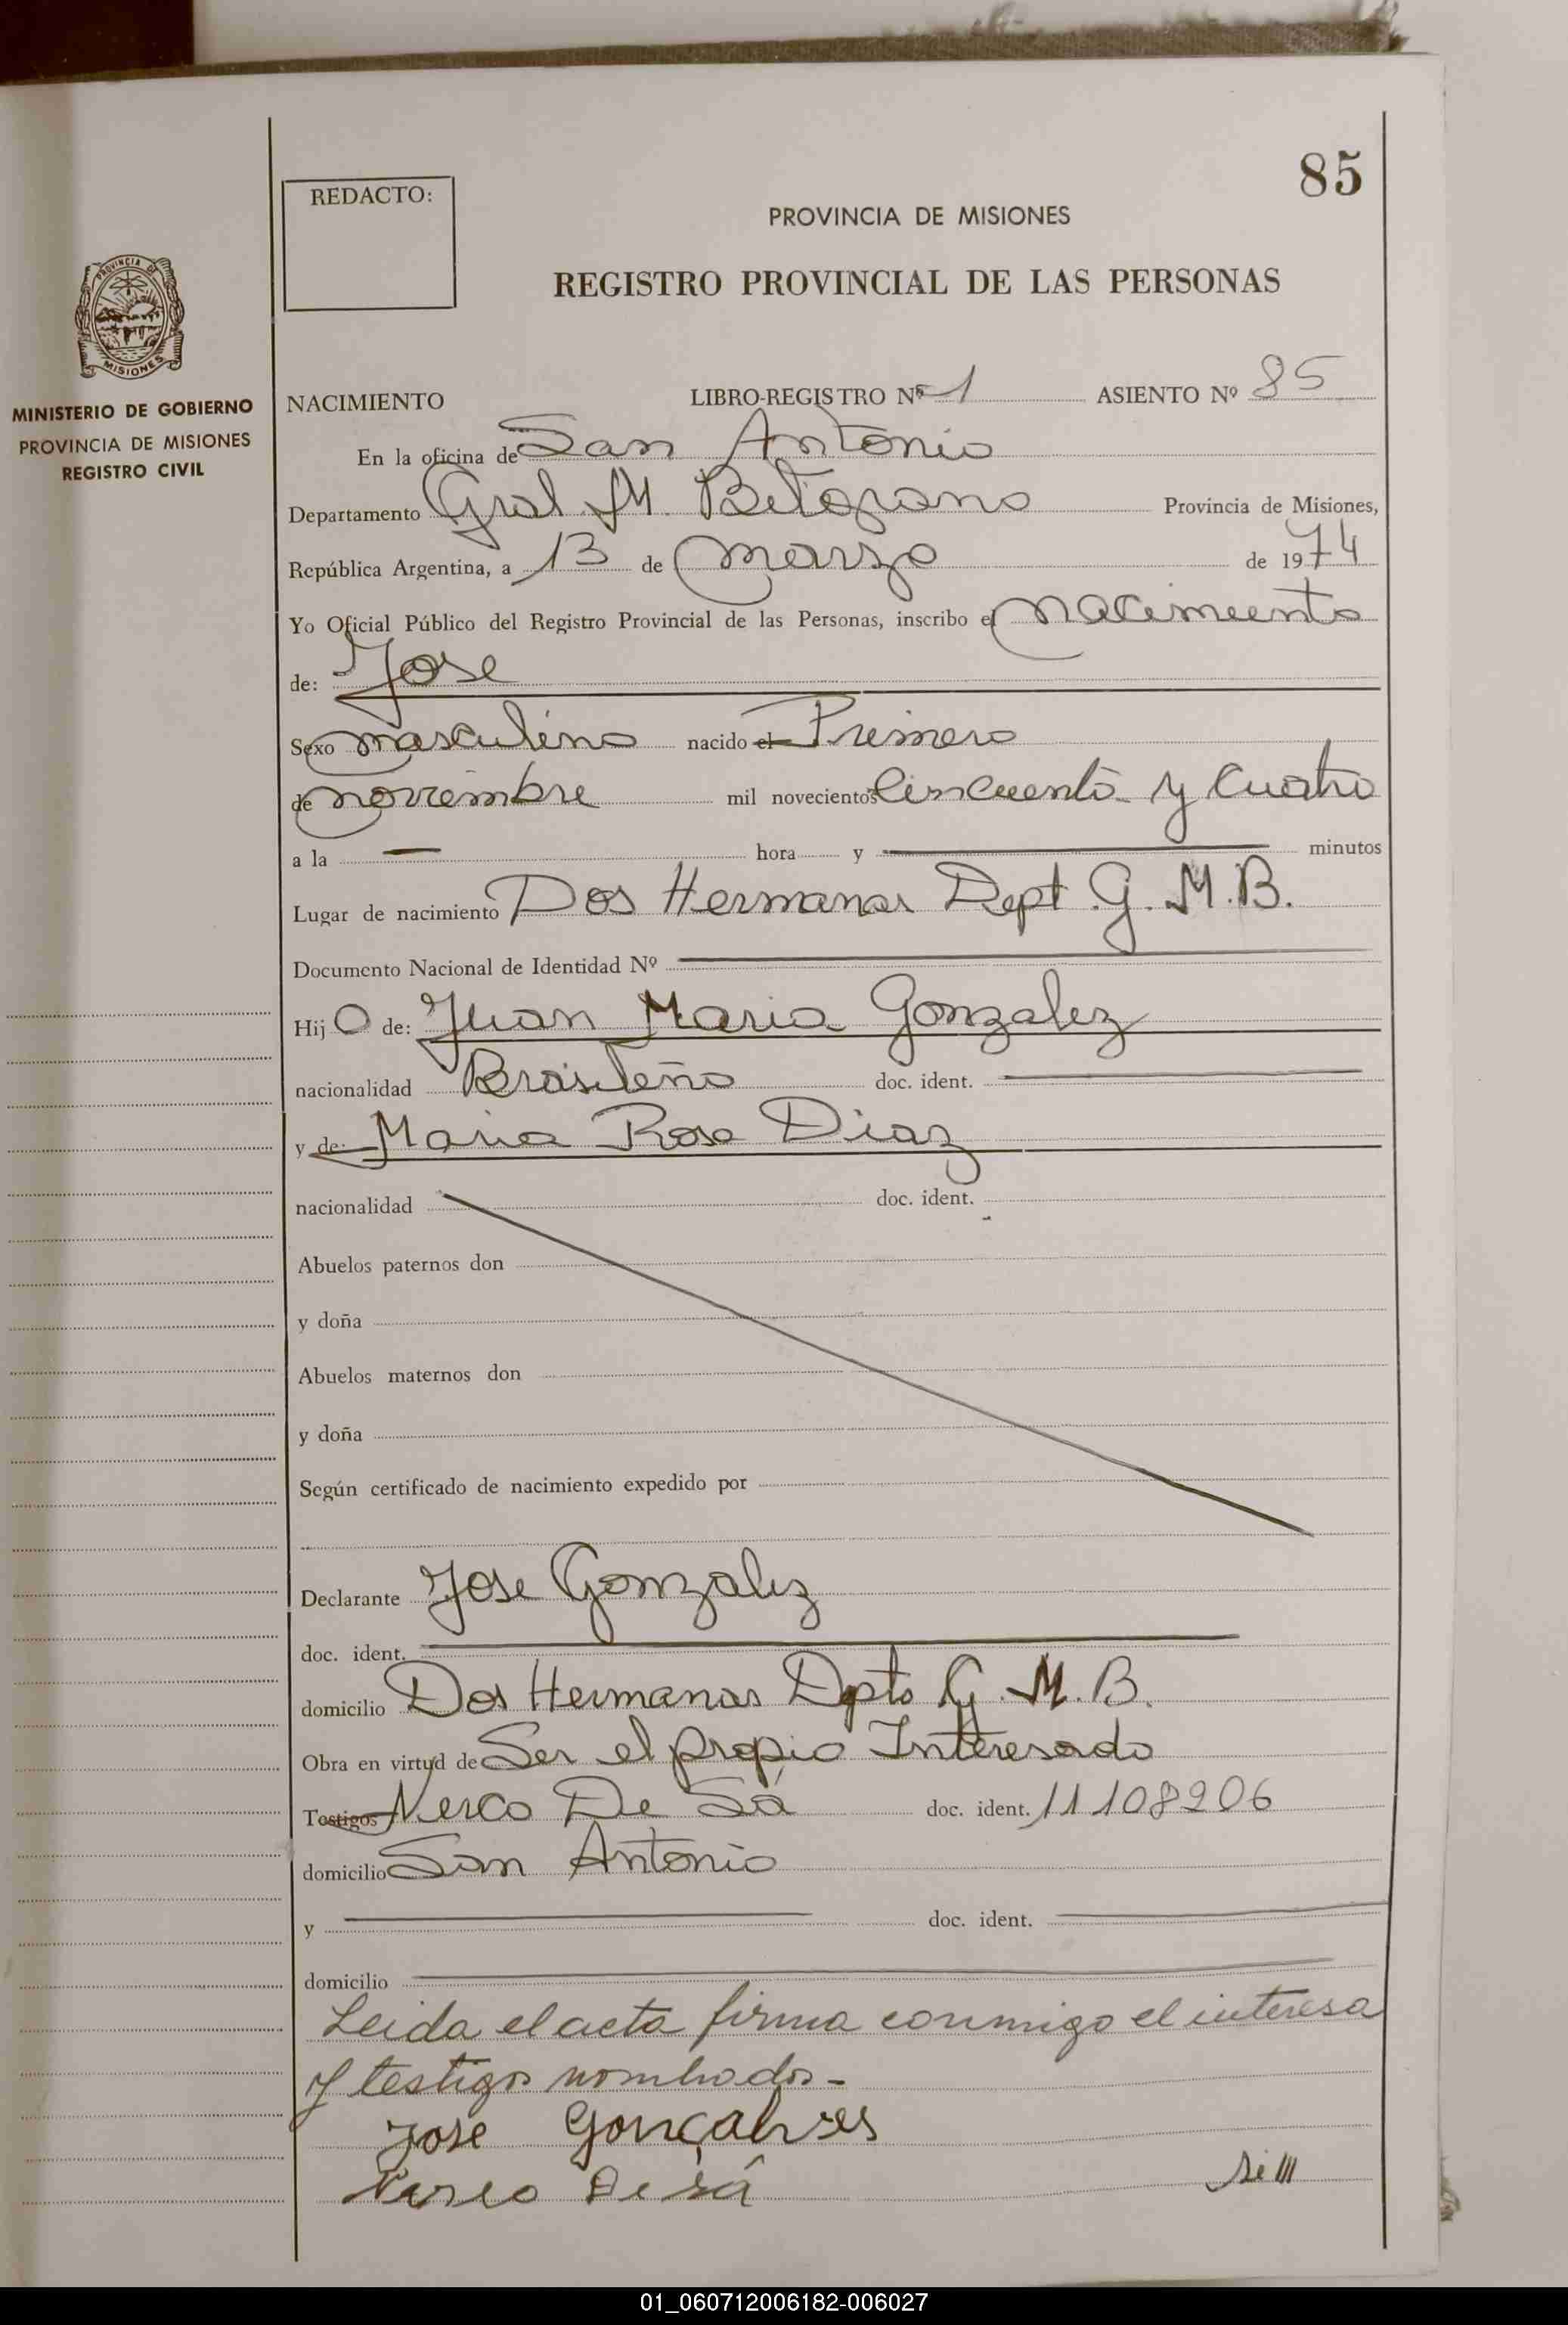 85
REDACTO:
PROVINCIA DE MISIONES
REGISTRO PROVINCIAL DE LAS PERSONAS
PROVINCIA DE
MISIONES
MINISTERIO DE GOBIERNO
PROVINCIA DE MISIONES
REGISTRO CIVIL
NACIMIENTO LIBRO-REGISTRO Nº 1 ASIENTO Nº 85
En la oficina de San Antonio
Departamento Gral M. Belgrano Provincia de Misiones,
República Argentina, a 13 de marzo de 1974
Yo Oficial Público del Registro Provincial de las Personas, inscribo el nacimiento
de: Jose
Sexo masculino nacido el Primero
de noviembre mil novecientos Cincuenta y Cuatro
a la — hora y minutos
Lugar de nacimiento Dos Hermanas Dept G. M. B.
Documento Nacional de Identidad Nº
Hijo de: Juan Maria Gonzalez
nacionalidad Brasileño doc. ident.
y de: Maria Rosa Diaz
nacionalidad doc. ident.
Abuelos paternos don
y doña
Abuelos maternos don
y doña
Según certificado de nacimiento expedido por
Declarante Jose Gonzalez
doc. ident.
domicilio Dos Hermanas Dpto G. M. B.
Obra en virtud de Ser el propio Interesado
Testigos Nerco De Sá doc. ident. 11108206
domicilio San Antonio
y doc. ident.
domicilio
Leida el acta firma conmigo el interesa
y testigo nombrado-
Jose Gonçalves
De sá
01_060712006182-006027